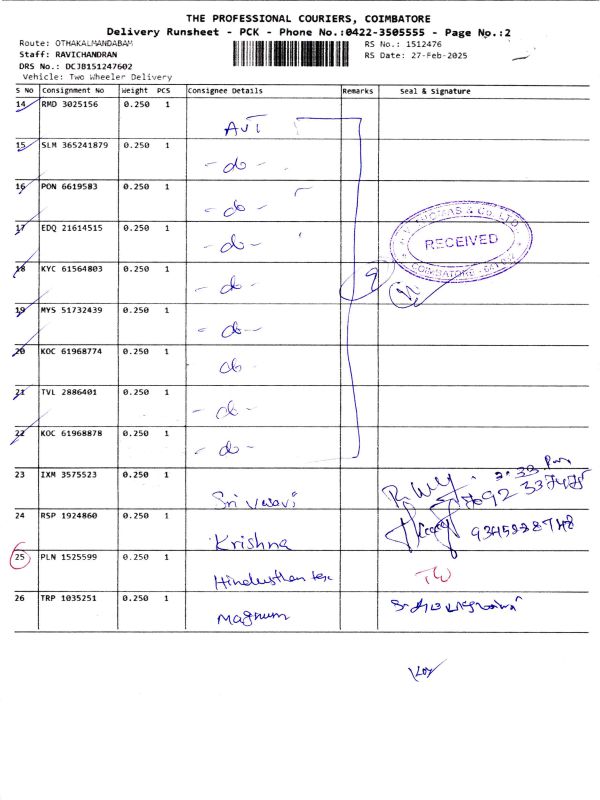 THE PROFESSIONAL COURIERS, COIMBATORE
Delivery Runsheet - PCK - Phone No.:0422-3505555 - Page No.:2
Route: OTHAKALMANDABAM
RS No.: 1512476
Staff: RAVICHANDRAN
RS Date: 27-Feb-2025
DRS No.: DCJB151247602
Vehicle: Two Wheeler Delivery
S No Consignment No Weight PCS Consignee Details Remarks Seal & Signature
14 RMD 3025156 0.250 1
AJT
15 SLM 365241879 0.250 1
- do -
16 PON 6619583 0.250 1
- do -
17 EDQ 21614515 0.250 1
- do -
THOMAS & Co. LTD.
RECEIVED
COIMBATORE
18 KYC 61564803 0.250 1
- do -
9
19 MYS 51732439 0.250 1
- do -
20 KOC 61968774 0.250 1
do -
21 TVL 2886401 0.250 1
- do -
22 KOC 61968878 0.250 1
- do -
23 IXM 3575523 0.250 1
24 RSP 1924860 0.250 1
Krishna
25 PLN 1525599 0.250 1
Hindusthan
26 TRP 1035251 0.250 1
Magnum